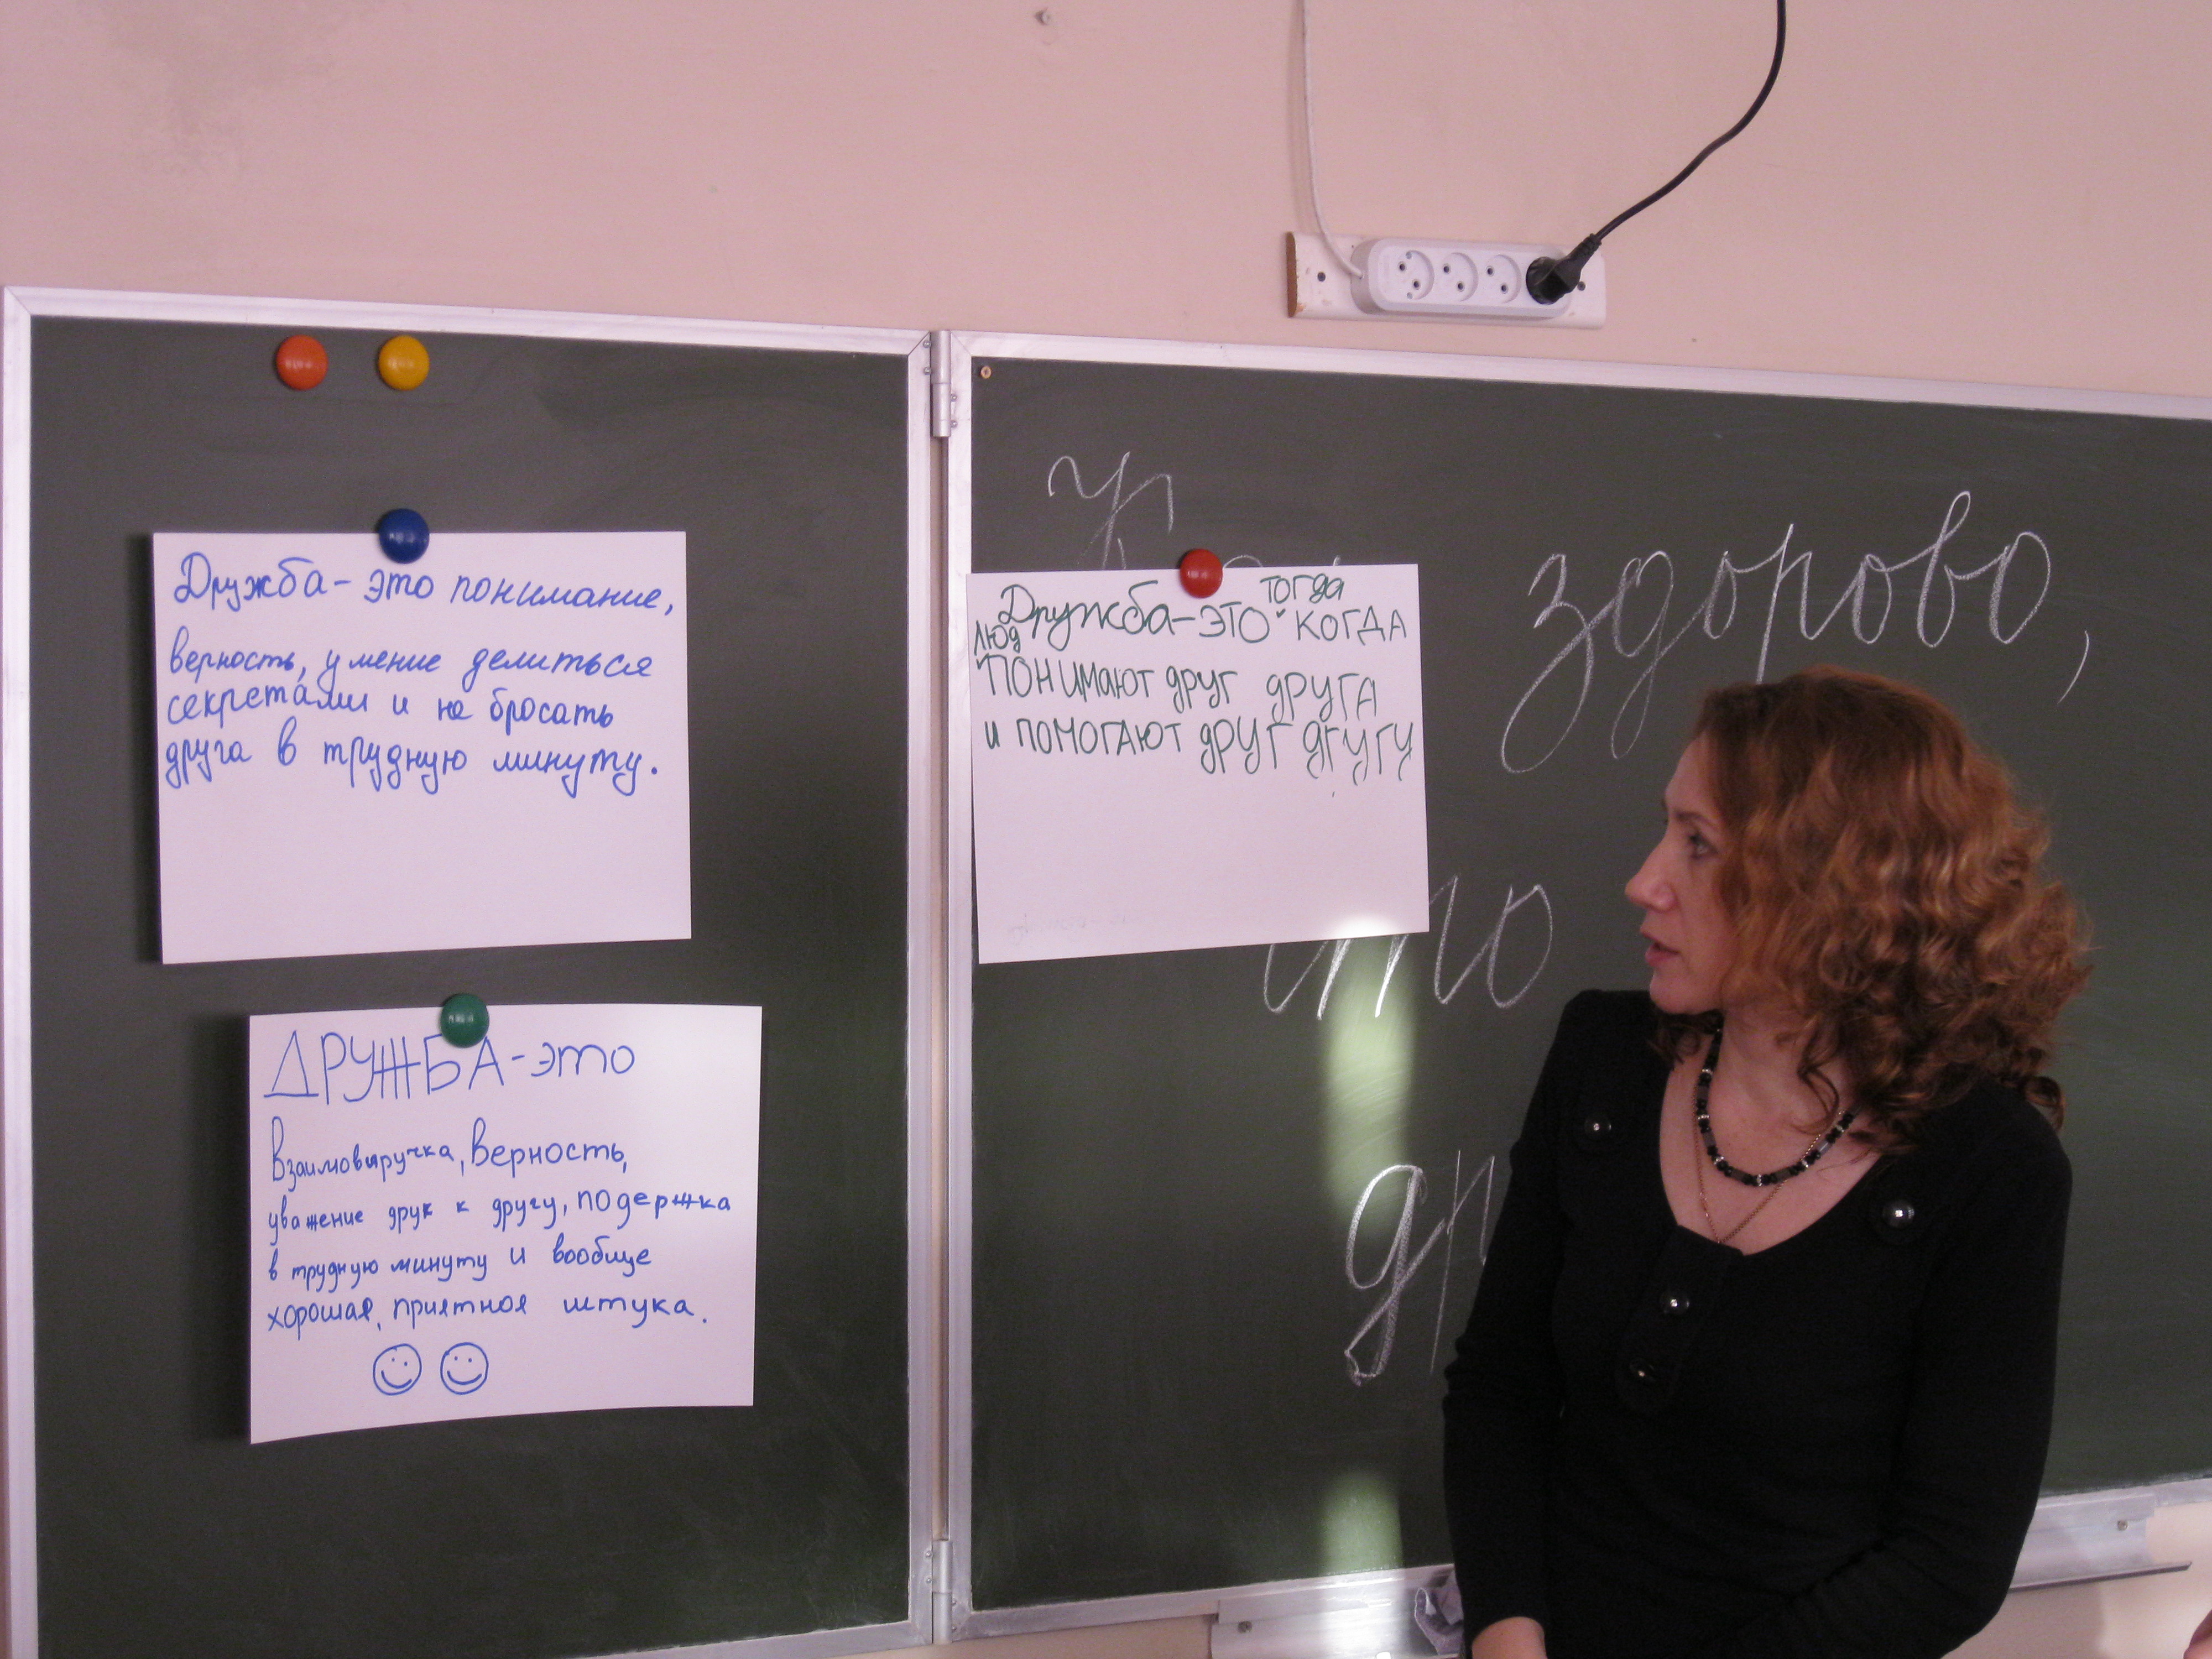 Дружба - это понимание,
верность, умение делиться
секретами и не бросать
друга в трудную минуту.
ДРУЖБА - это
Взаимовыручка, Верность,
уважение друк к другу, подержка
в трудную минуту и вообще
хорошая, приятноя штука.
тогда
Дружба - ЭТО КОГДА
люд
ПОНИМАЮТ друг друга
и помогают друг другу
здорово,